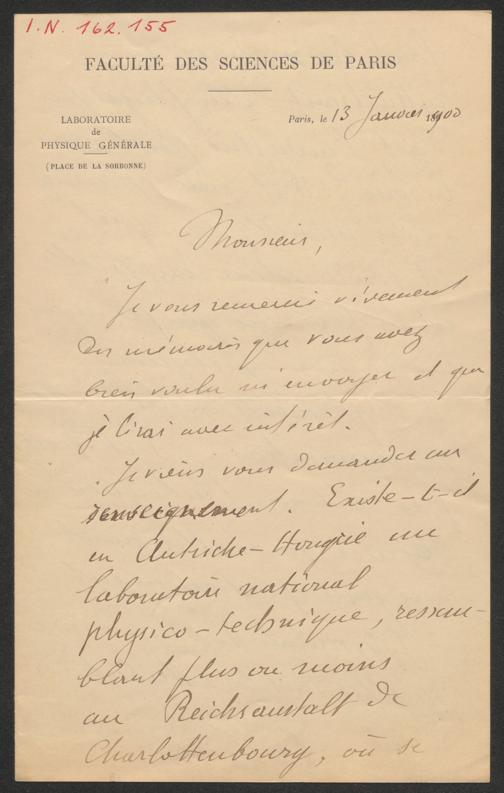 I.N. 162.155
FACULTÉ DES SCIENCES DE PARIS
LABORATOIRE
de
PHYSIQUE GÉNÉRALE
(PLACE DE LA SORBONNE)
Paris, le 13 Janvier 1900
Monsieur,
Je vous remercie vivement
des mémoires que vous avez
bien voulu m'envoyer et que
je lirai avec intérêt.
Je viens vous demander un
renseignement. Existe-t-il
en Autriche-Hongrie un
laboratoire national
physico-technique, ressem-
blant plus ou moins
au Reichsanstalt de
Charlottenbourg, où se